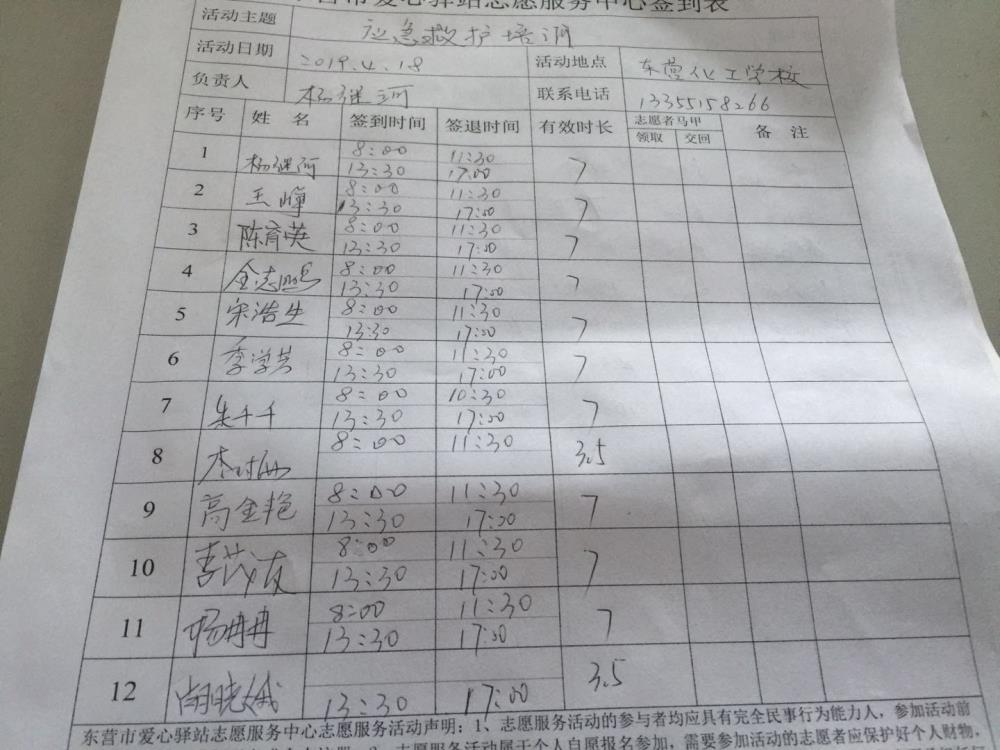 东营市爱心驿站志愿服务中心签到表
活动主题 应急救护培训
活动日期 2019.4.18 活动地点 东营化工学校
负责人 杨继河 联系电话 13355158266
序号 姓 名 签到时间 签退时间 有效时长 志愿者马甲 备 注
领取 交回
1 杨继河 8:00 11:30 7
13:30 17:00
2 王峰 8:00 11:30 7
13:30 17:00
3 陈育英 8:00 11:30 7
13:30 17:00
4 8:00 11:30 7
13:30 17:00
5 宋浩生 8:00 11:30 7
13:30 17:00
6 季学芳 8:00 11:30 7
13:30 17:00
7 朱千千 8:00 10:30 7
13:30 17:00
8 8:00 11:30 3.5
9 高金艳 8:00 11:30 7
13:30 17:00
10 李茂友 8:00 11:30 7
13:30 17:00
11 杨冉冉 8:00 11:30 7
13:30 17:00
12 3.5
13:30 17:00
东营市爱心驿站志愿服务中心志愿服务活动声明：1、志愿服务活动的参与者均应具有完全民事行为能力人，参加活动前
志愿服务活动属于个人自愿报名参加，需要参加活动的志愿者应保护好个人财物，